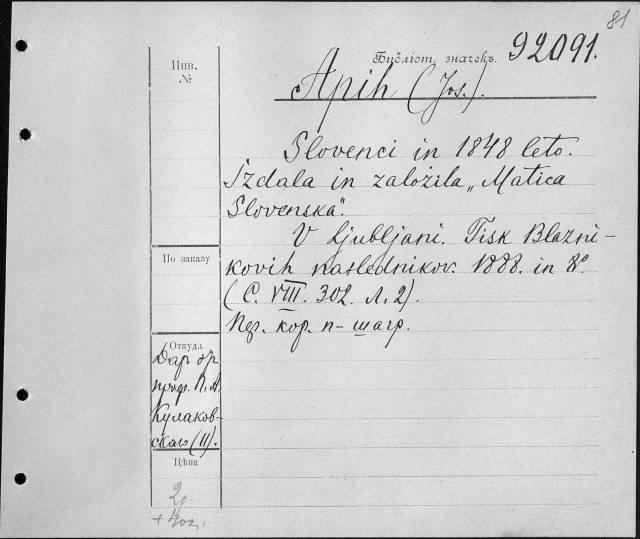 81
Инв.
№
Бібліот. значекъ. 92091.
Apih (Jos.).
Slovenci in 1848 leto.
Izdala in založila „Matica
Slovenska“.
V Ljubljani. Tisk Blazni-
kovih naslednikov. 1888. in 8°.
(С. VIII. 302. л. 2).
кор. п-шагр.
По заказу
Откуда
Дар
проф. П. А.
Кулаков-
скаго (II).
Цѣна
2р.